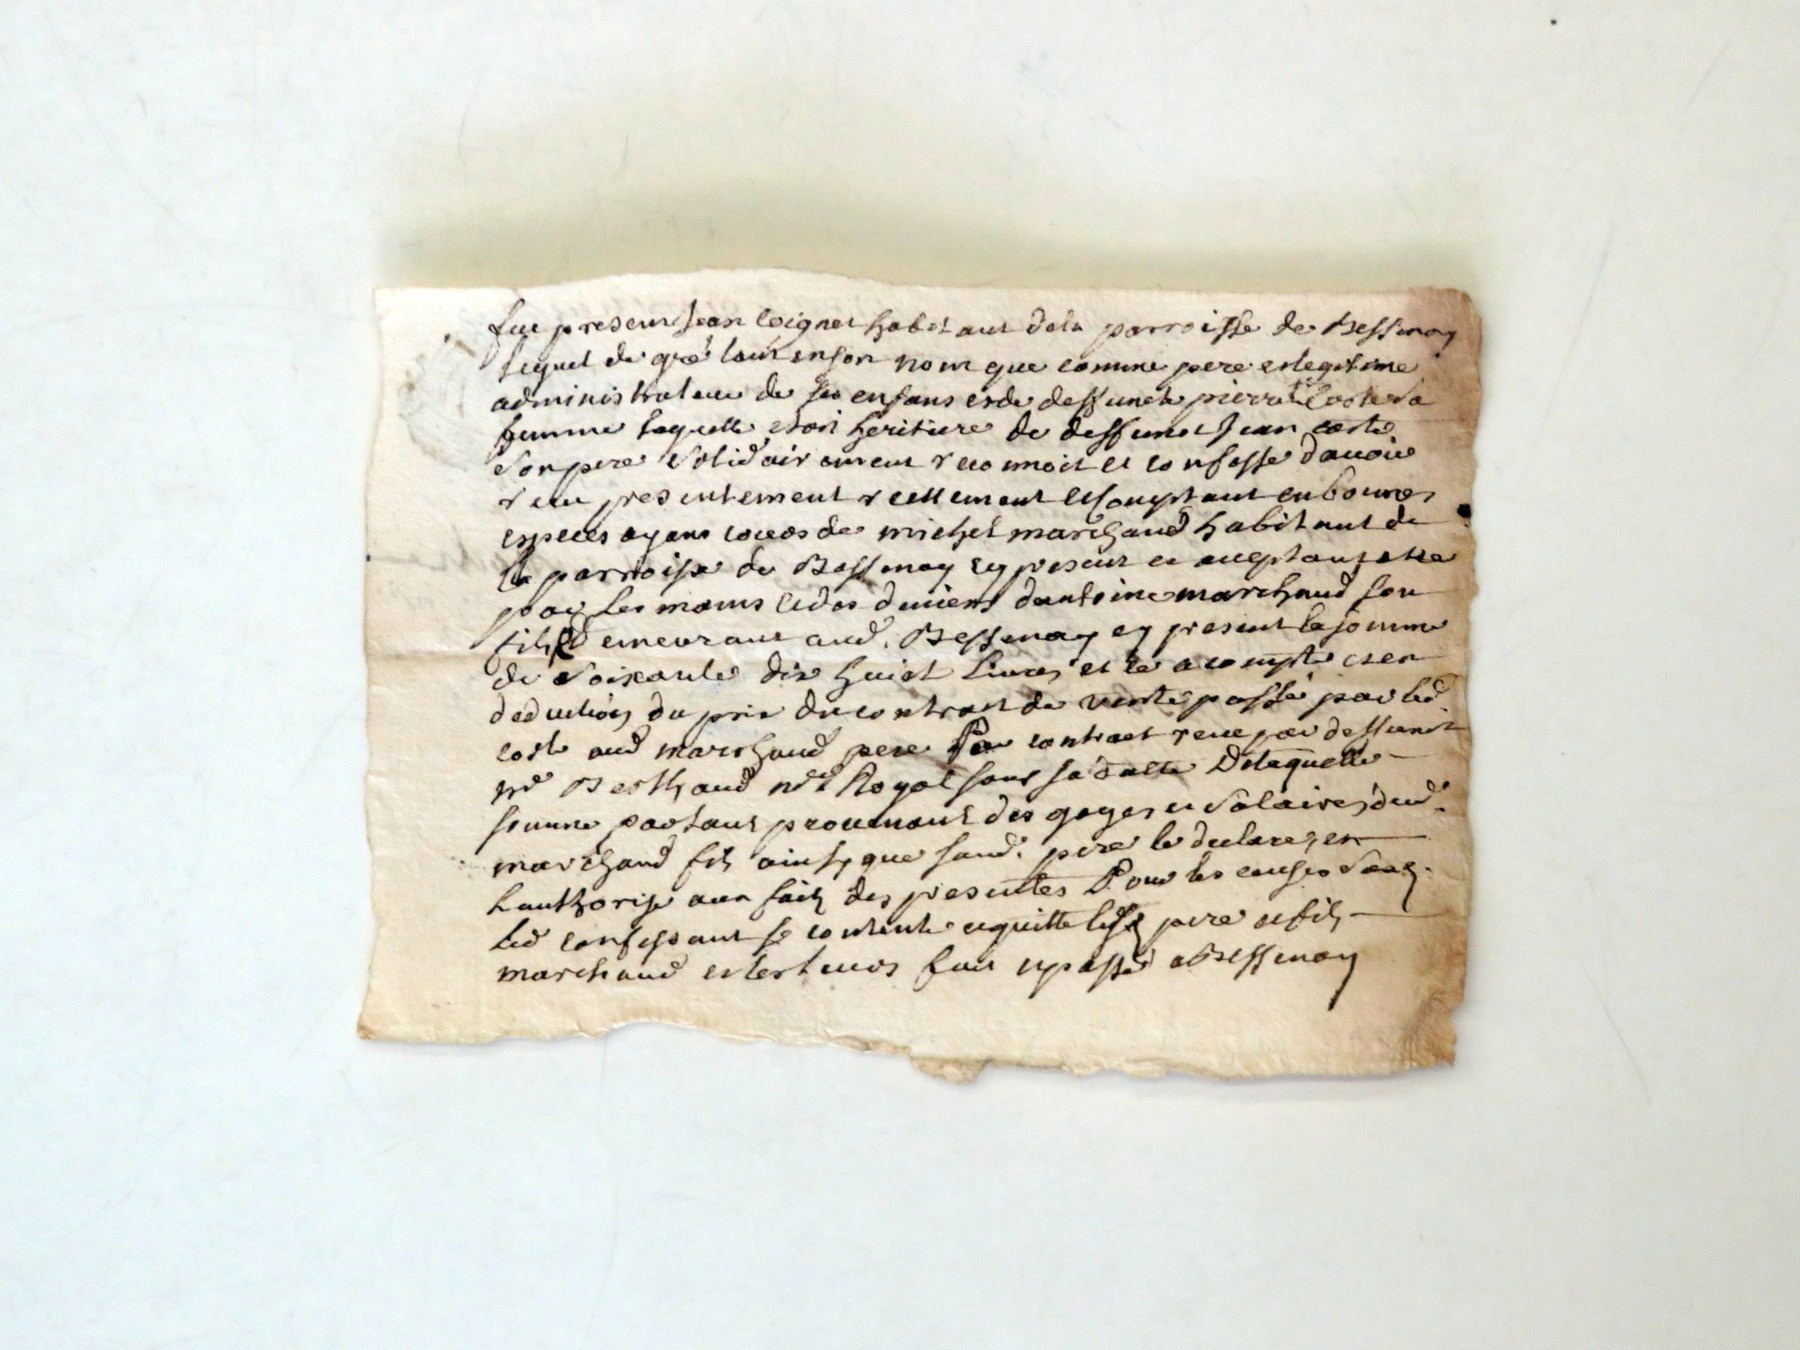 fut present Jean Coignet habitant de la parroisse de Bessenay
lequel de gré tant en son nom que comme pere et legitime
administrateur de ses enfans et de deffuncte pierrette Coste sa
femme laquelle etoit heritiere de deffunct Jean coste
son pere solidairement reconnoit et confesse dauoir
receu presentement reellement et Comptant en bonnes
especes ayans cours de michel marchand habitant de
la parroisse de Bessenay cy present et acceptant
par les mains et des deniers dantoine marchand son
fils demeurant aud. Bessenay cy present la somme
de soixante dix huict liures et ce a compte et en
deduction du prix du contract de vente passé par led.
coste aud marchand pere Par contract receu par deffunct
me Berthaud nre Royal sous sa datte De laquelle
somme partant prouenant des gages et salaires dud.
marchand fils ainsy que sond. pere le declare, et
lauthorise aux fait des presentes Pour les causes
led confessant se contente et quitte lesd pere et fils
marchand et tous fait et passé a Bessenay